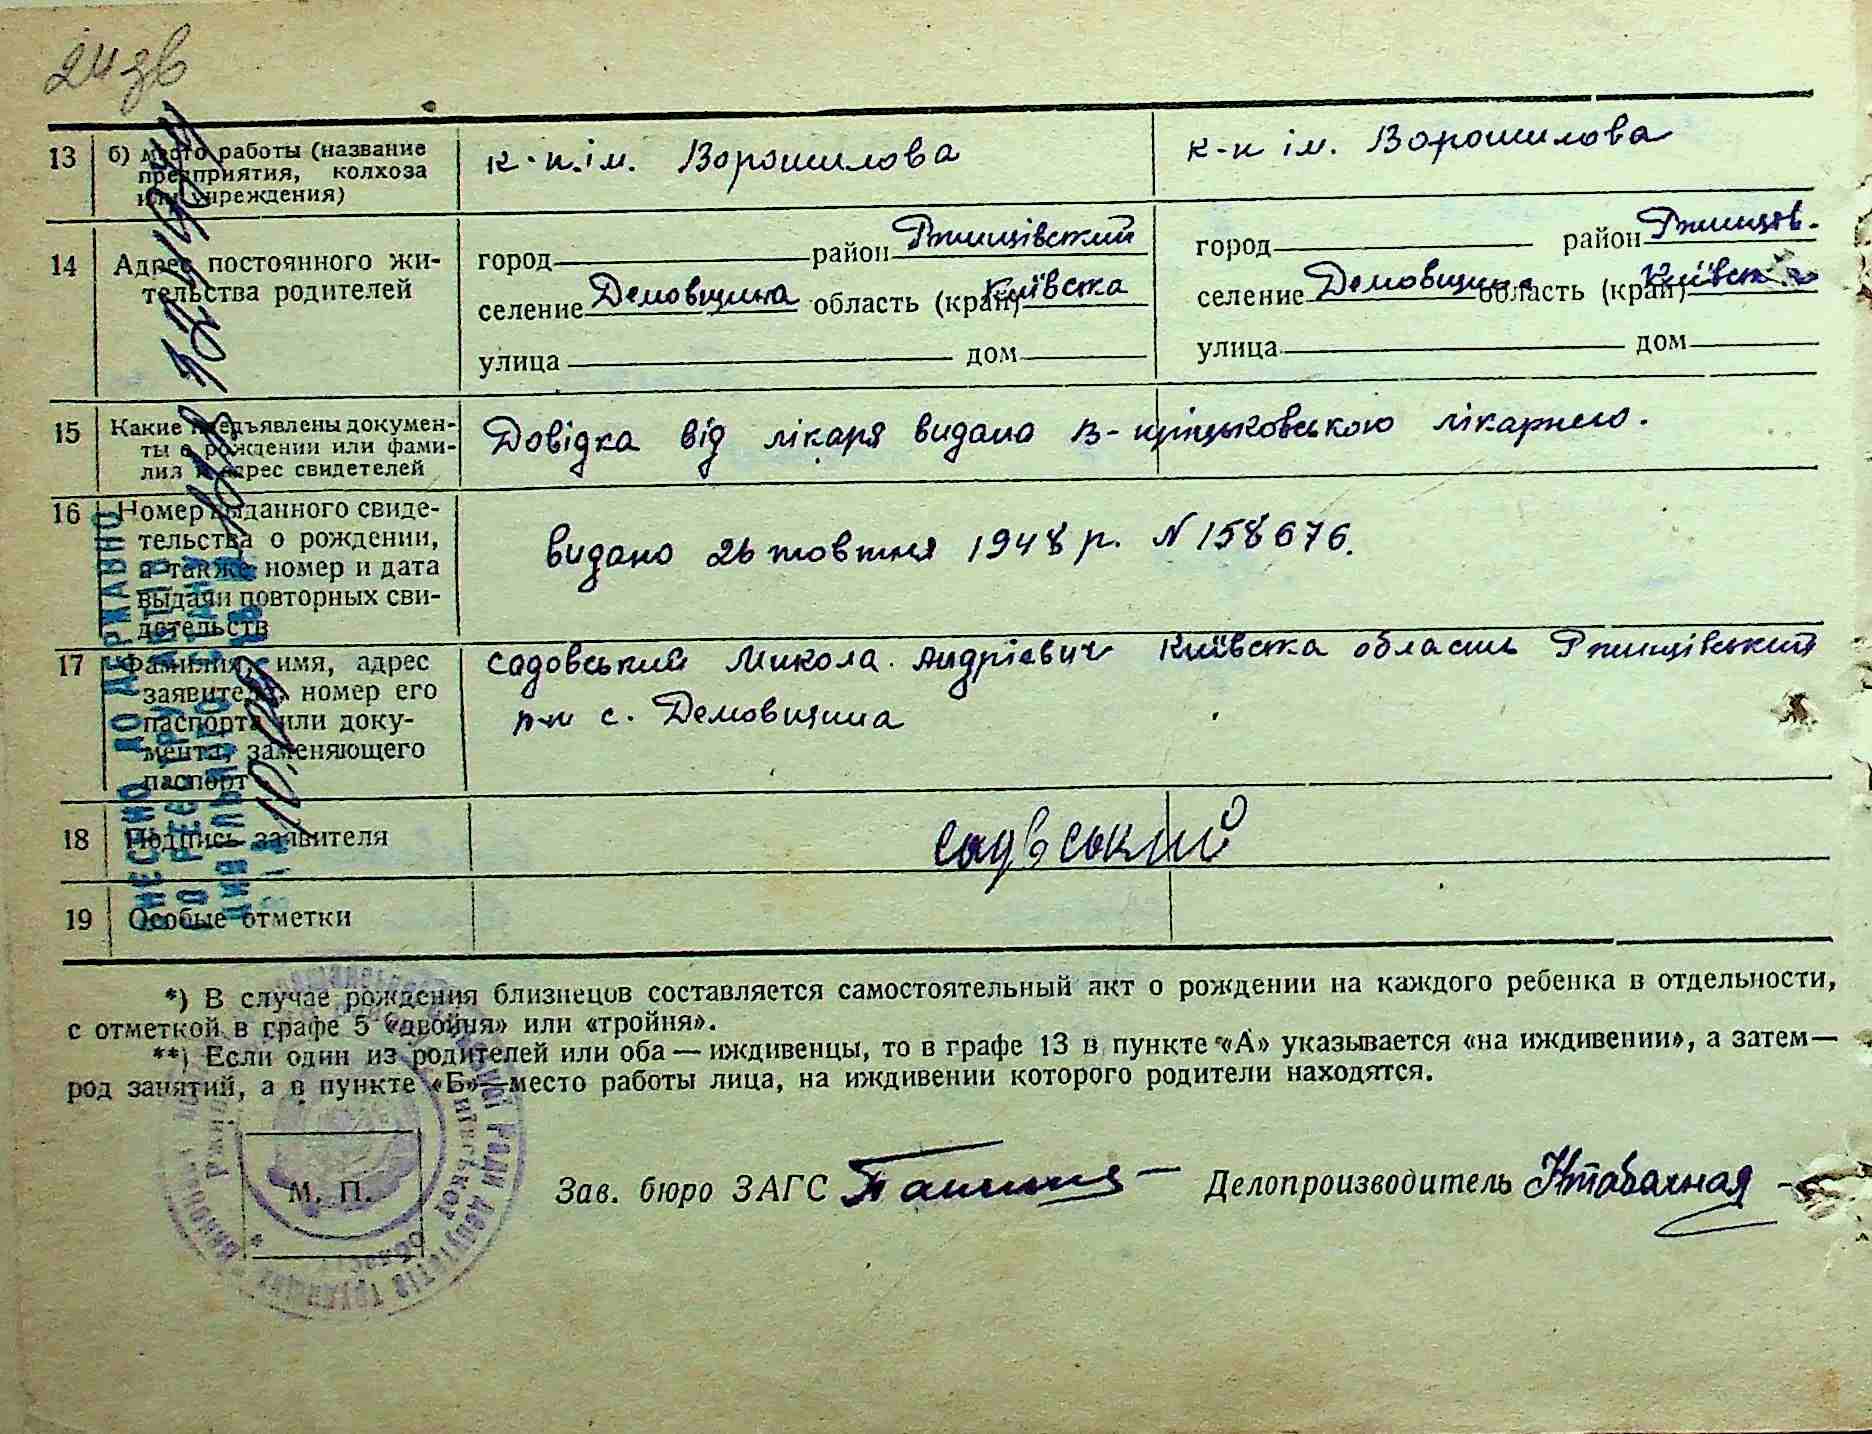 24 зв
13 б) место работы (название предприятия, колхоза или учреждения) к-п.ім. Ворошилова к-п ім. Ворошилова
14 Адрес постоянного жительства родителей
город район Ржищівський город район Ржищів.
селение Демовщина область (край) Київська селение Демовщина область (край) Київська
улица дом улица дом
15 Какие предъявлены документы о рождении или фамилия и адрес свидетелей Довідка від лікаря видана лікарнею.
16 Номер выданного свидетельства о рождении, а также номер и дата выдачи повторных свидетельств видано 26 жовтня 1948 р. № 158676.
17 Фамилия, имя, адрес заявителя, номер его паспорта или документа, заменяющего паспорт Садовський Микола Андрієвич Київська область Ржищівський
р-н с. Демовщина
18 Подпись заявителя Садвський
19 Особые отметки
*) В случае рождения близнецов составляется самостоятельный акт о рождении на каждого ребенка в отдельности,
с отметкой в графе 5 «двойня» или «тройня».
**) Если один из родителей или оба — иждивенцы, то в графе 13 в пункте «А» указывается «на иждивении», а затем —
род занятий, а в пункте «Б» — место работы лица, на иждивении которого родители находятся.
М. П.
Зав. бюро ЗАГС Делопроизводитель
ВНЕСЕНО ДО ДЕРЖАВНОГО РЕЄСТРУ АКТІВ ЦИВІЛЬНОГО СТАНУ
депутатів трудящих